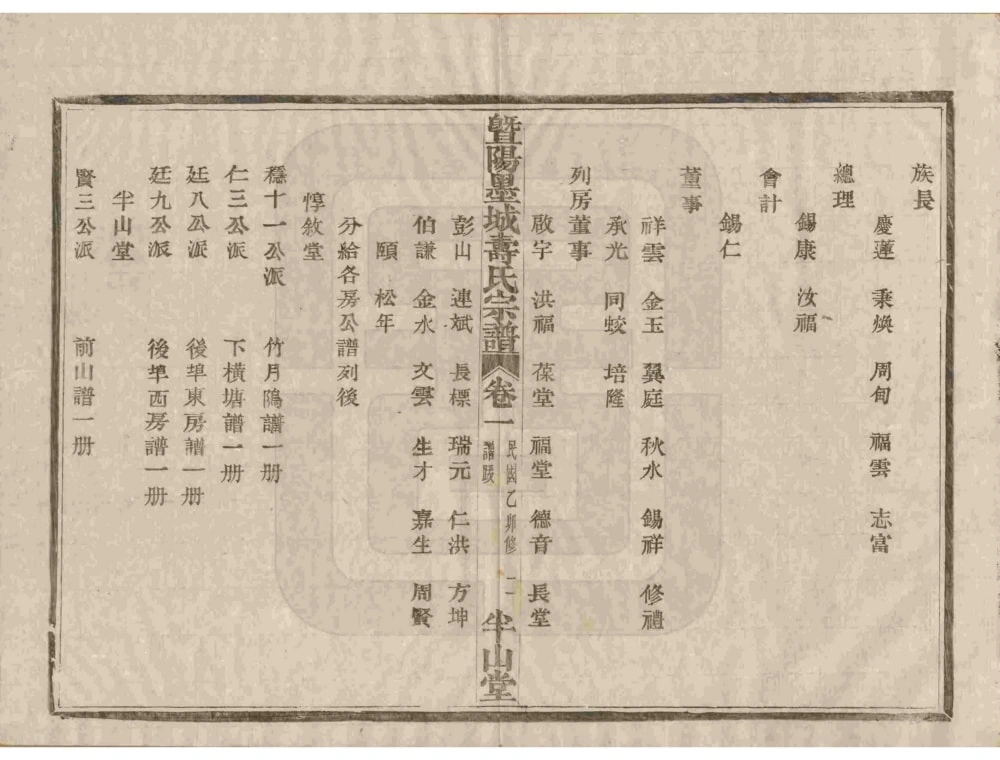 族長
慶蓮 秉煥 周甸 福雲 志富
總理
錫康 汝福
會計
錫仁
董事
祥雲 金玉 翼庭 秋水 錫祥 修禮
承光 同蛟 培隆
列房董事
啟宇 洪福 葆堂 福堂 德音 長堂
暨陽墨城壽氏宗譜 卷一 民國乙卯修 譜跋 二 半山堂
彭山 連斌 長標 瑞元 仁洪 方坤
伯謙 金水 文雲 生才 嘉生 周賢
頤 松年
分給各房公譜列後
惇敘堂
穩十一公派 竹月隖譜一册
仁三公派 下橫塘譜一册
廷八公派 後埠東房譜一册
廷九公派 後埠西房譜一册
半山堂
賢三公派 前山譜一册